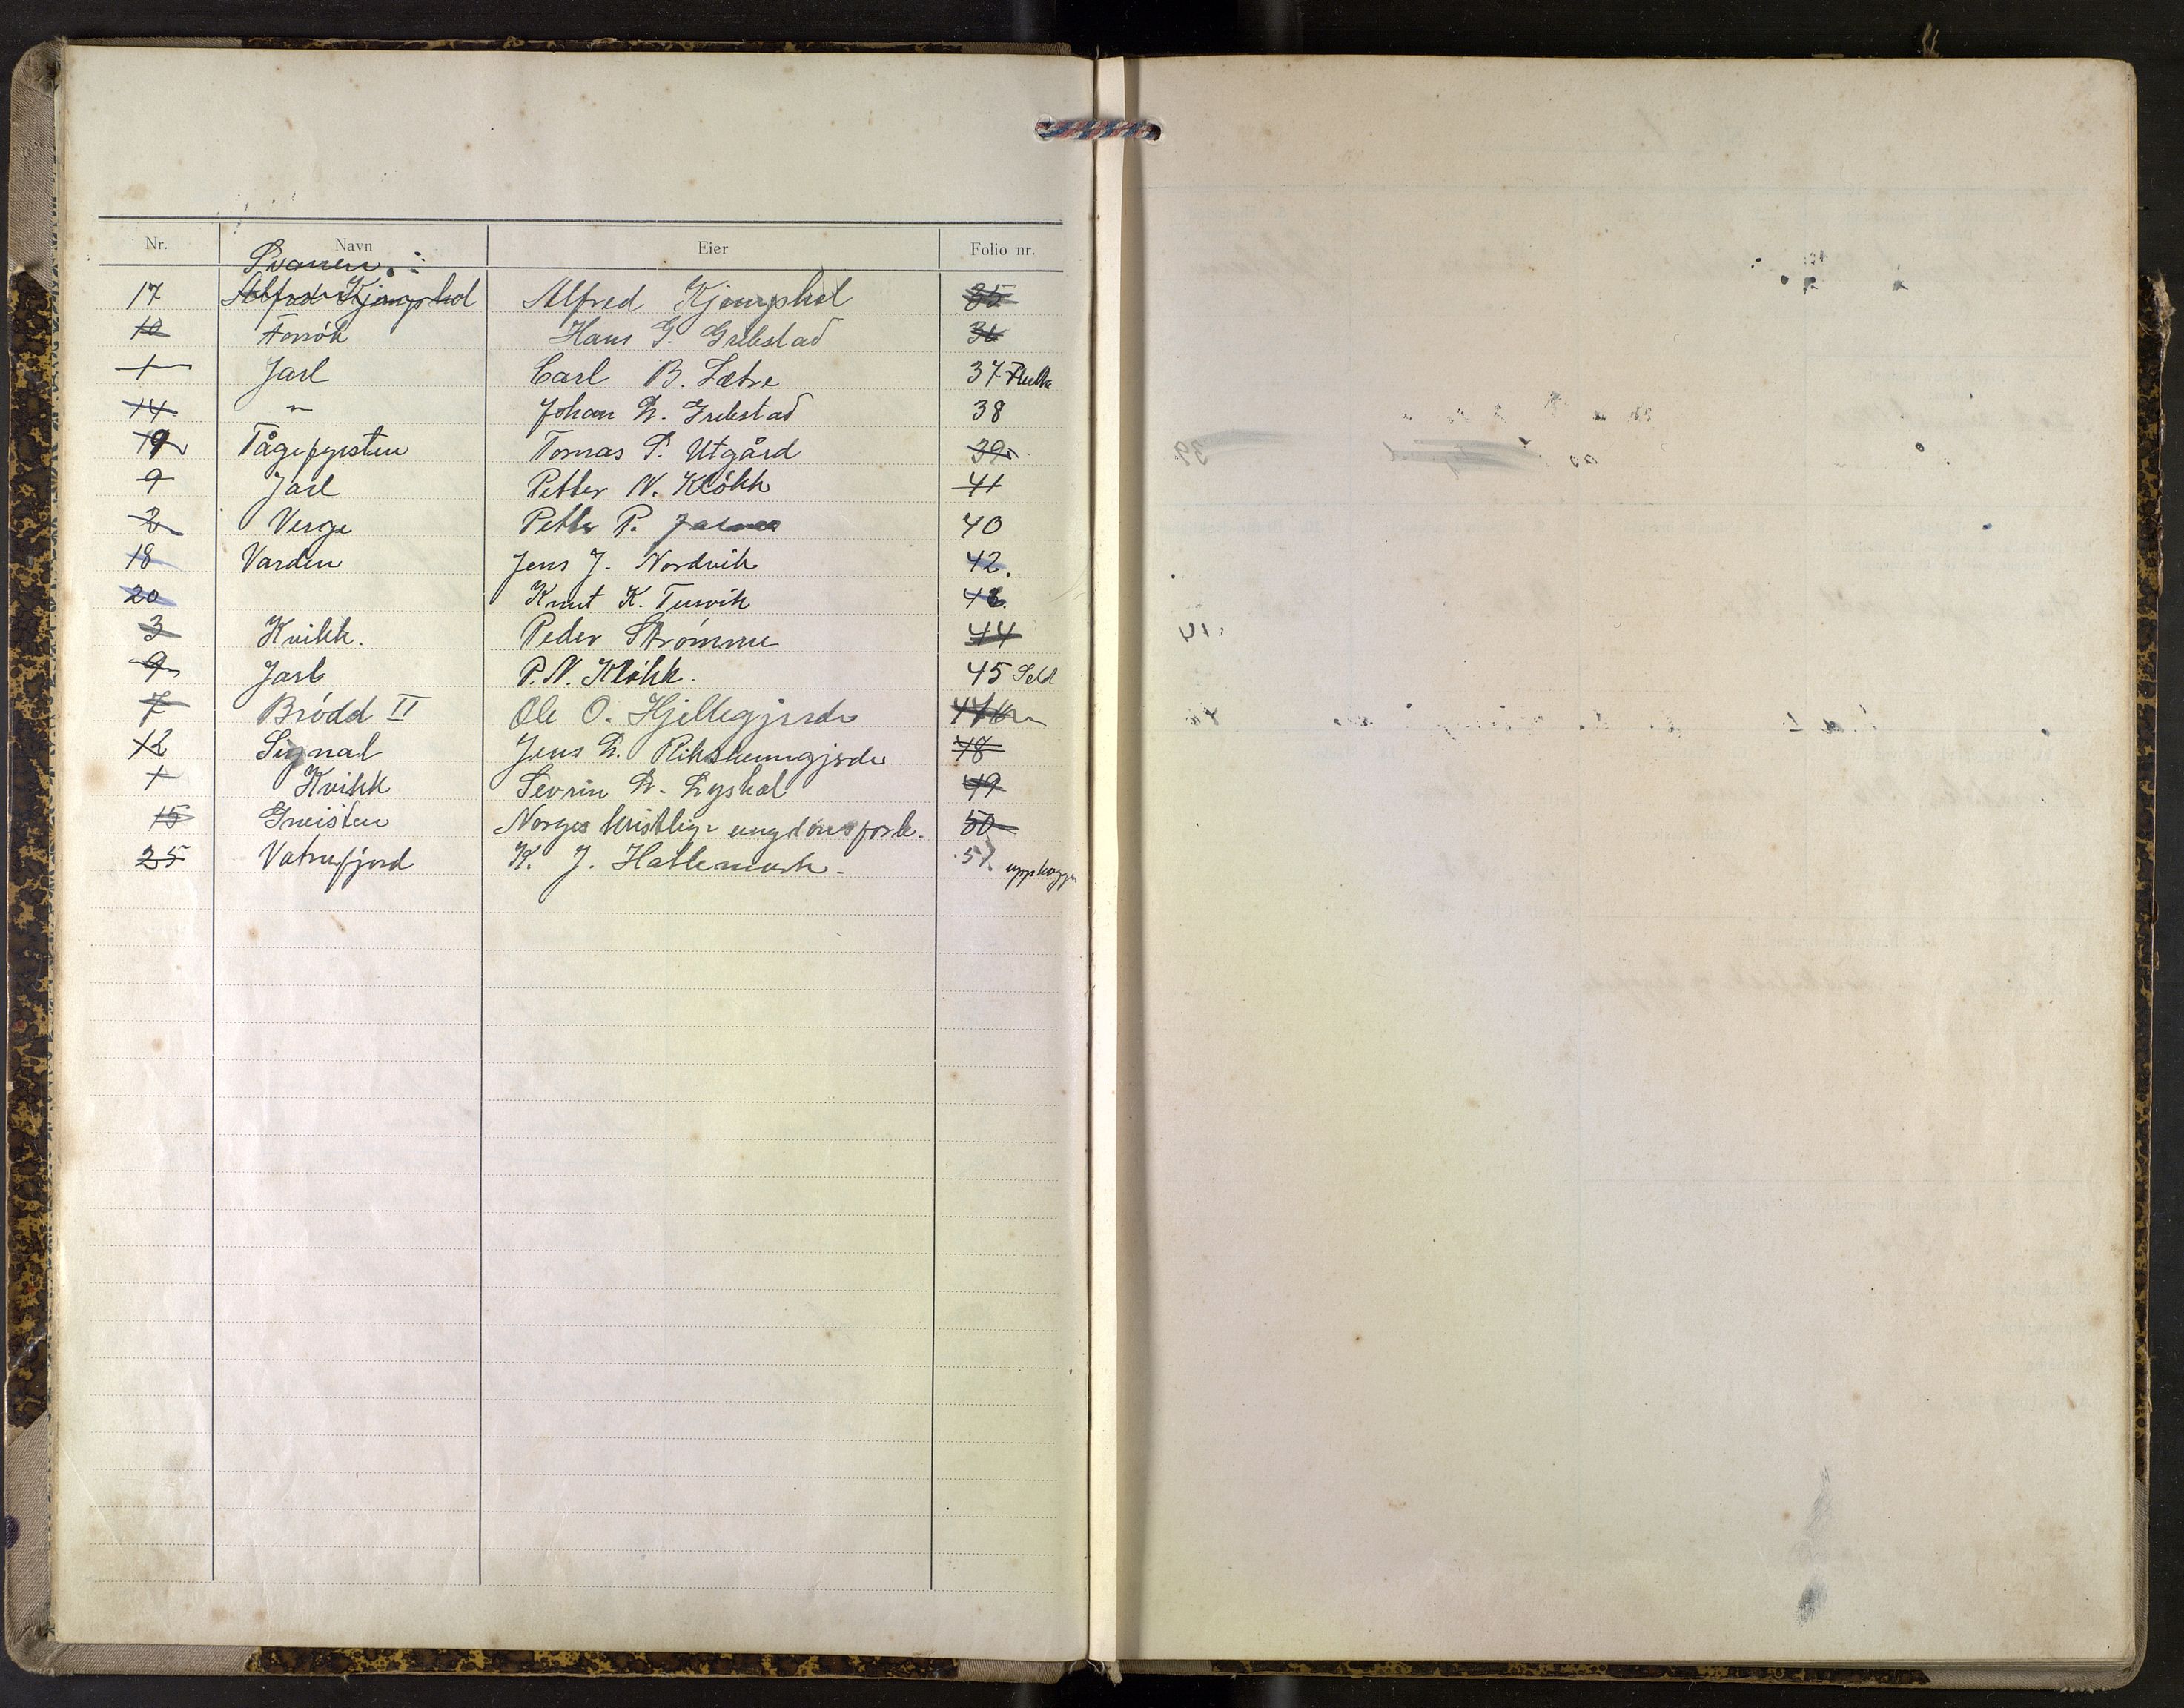 Nr. Navn Eier Folio nr.
Svanen
17 Alfred Kjemphol Alfred Kjemphol 35
10 Forsök Hans G. Grebstad 36
1 Jarl Carl B. Sætre 37
14 " Johan L. Grebstad 38
19 Tågefyrsten Tomas S. Utgård 39
9 Jarl Petter N. Kløkk 41
2 Verge Petter P. 40
18 Varden Jens J. Nordvik 42.
20 Knut K. Tusvik
3 Kvikk. Peder Strømme 44
9 Jarl P. N. Kløkk. 45 Seld
7 Brødd II Ole O. Hjellegjerde 47
12 Signal Jens L. 48
1 Kvikk Sevrin L. Lyshol 49
15 Gneisten Norges kristlige ungdomsforb. 50
25 Vatnefjord K. J. Hatlemark. 51. upphoggen